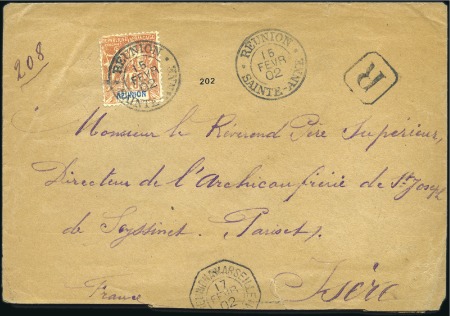 208
RÉUNION
15
FEVR
02
SAINTE-ANNE
RÉUNION
202
RÉUNION
15
FEVR
02
SAINTE-ANNE
R
Monsieur le Révérend Père Supérieur,
Directeur de l'Archiconfrérie de St Joseph
de Seyssinet. Pariset).
France
Isère
17
FEVR
02